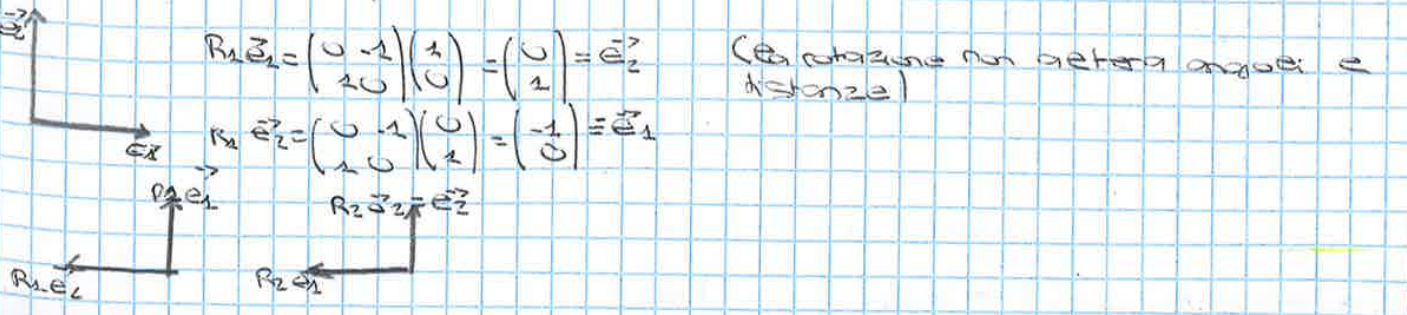 e⃗₂
R₁e⃗₁ = (0 -1 / 1 0)(1 / 0) = (0 / 1) = e⃗₂ (la rotazione non altera angoli e distanze)
e⃗₁
R₁ e⃗₂ = (0 -1 / 1 0)(0 / 1) = (-1 / 0) = e⃗₁
R₁e⃗₁
R₂e⃗₂ = e⃗₂
R₁e⃗₂
R₂e⃗₁